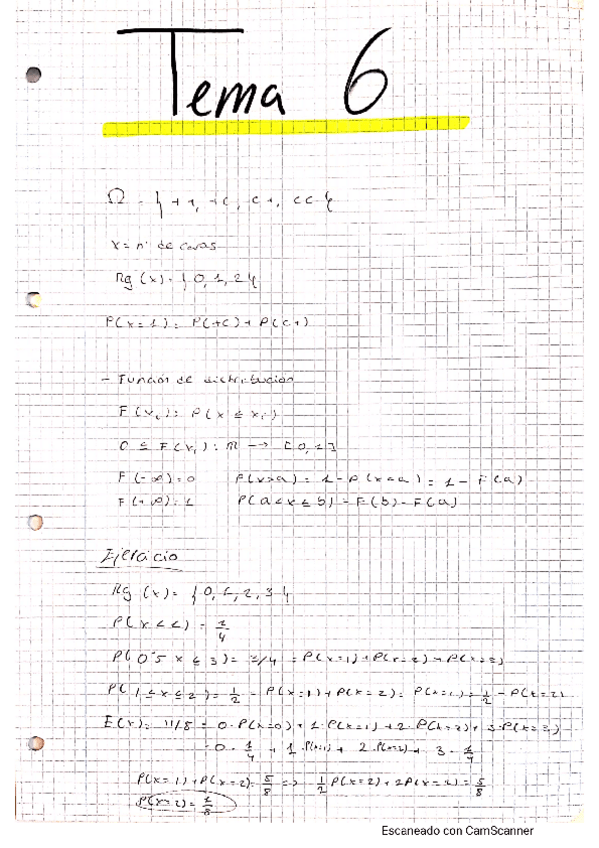 Tema 6
Ω = { ++, +c, c+, cc }
X = nº de caras
Rg (x) = { 0, 1, 2 }
P(x = 1) = P(+c) + P(c+)
- Función de distribución
F (xi) = P(x ≤ xi)
0 ≤ F(xi) : ℝ → [0, 1]
F (-∞) = 0 P(x>a) = 1 - P(x<a) = 1 - F(a)
F (+∞) = 1 P(a<x≤b) = F(b) - F(a)
Ejercicio
Rg (x) = { 0, 1, 2, 3 }
P(0'5 x ≤ 3) = 3/4 = P(x=1) + P(x=2) + P(x=3)
P(1 ≤ x ≤ 2) = 1/2 = P(x=1) + P(x=2) = P(x=1) = 1/2 - P(x=2)
E(x) = 11/8 = 0·P(x=0) + 1·P(x=1) + 2·P(x=2) + 3·P(x=3)
= 0·1/4 + 1·P(x=1) + 2·P(x=2) + 3·1/4
P(x=2) = 1/8
Escaneado con CamScanner